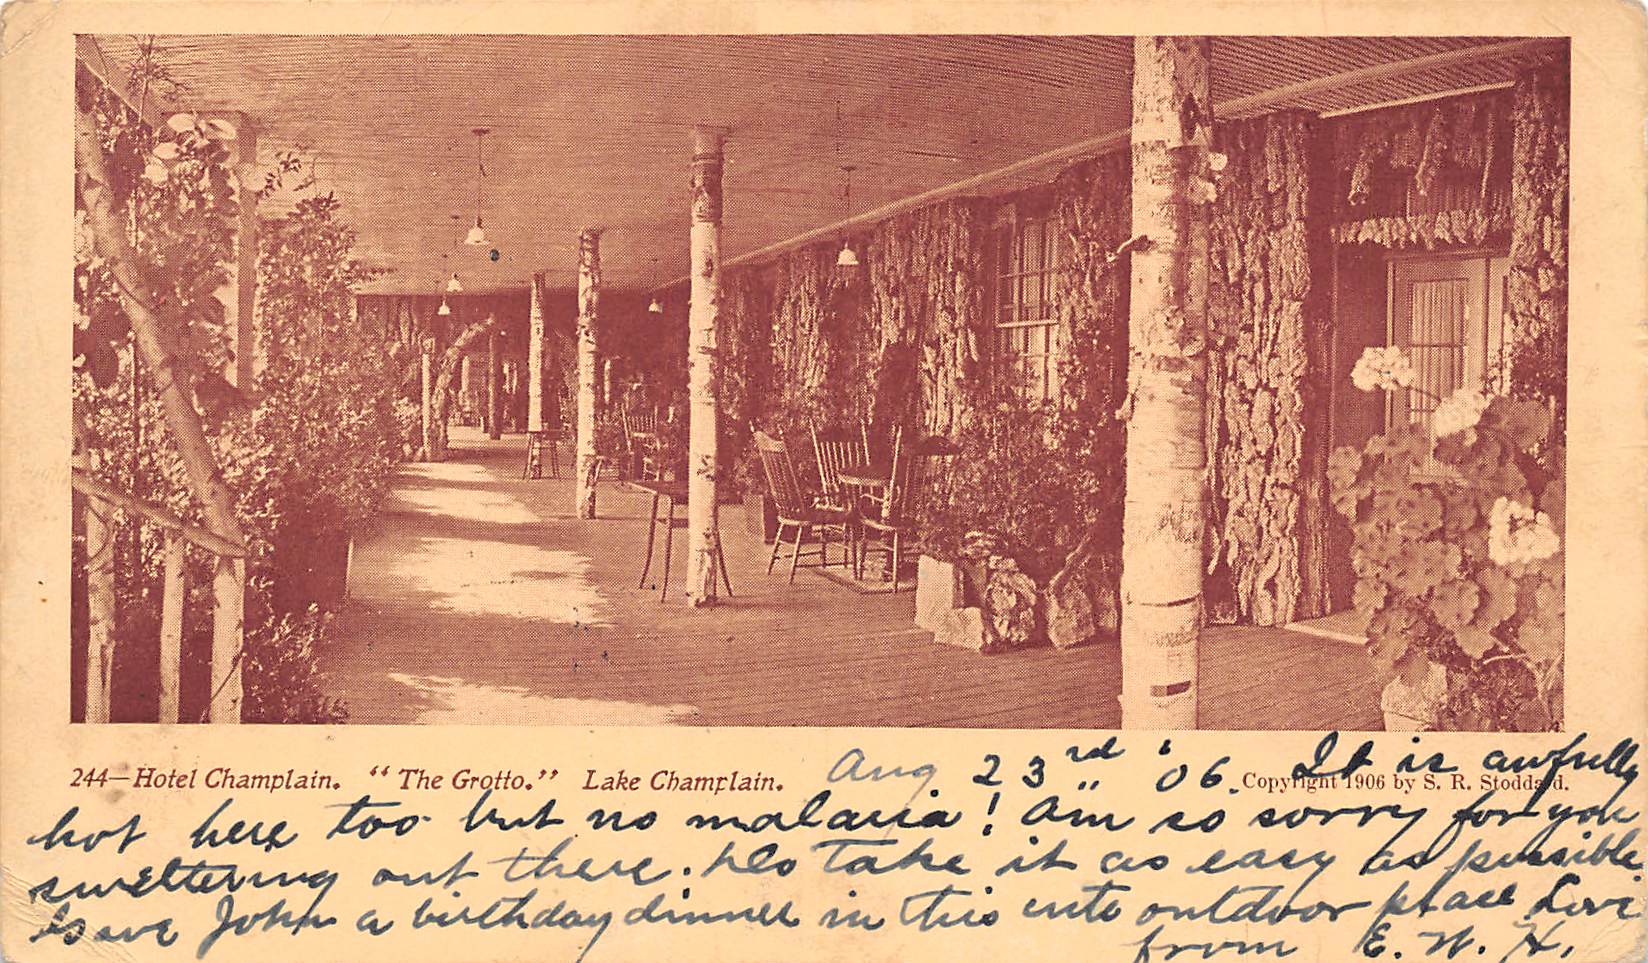 244—Hotel Champlain. “The Grotto.” Lake Champlain.
Copyright 1906 by S. R. Stoddard.
Aug 23rd '06. It is awfully
hot here too but no malaria! Am so sorry for you
sweltering out there. Do take it as easy as possible.
Gave John a birthday dinner in this cute outdoor place Love
from E. W. H.